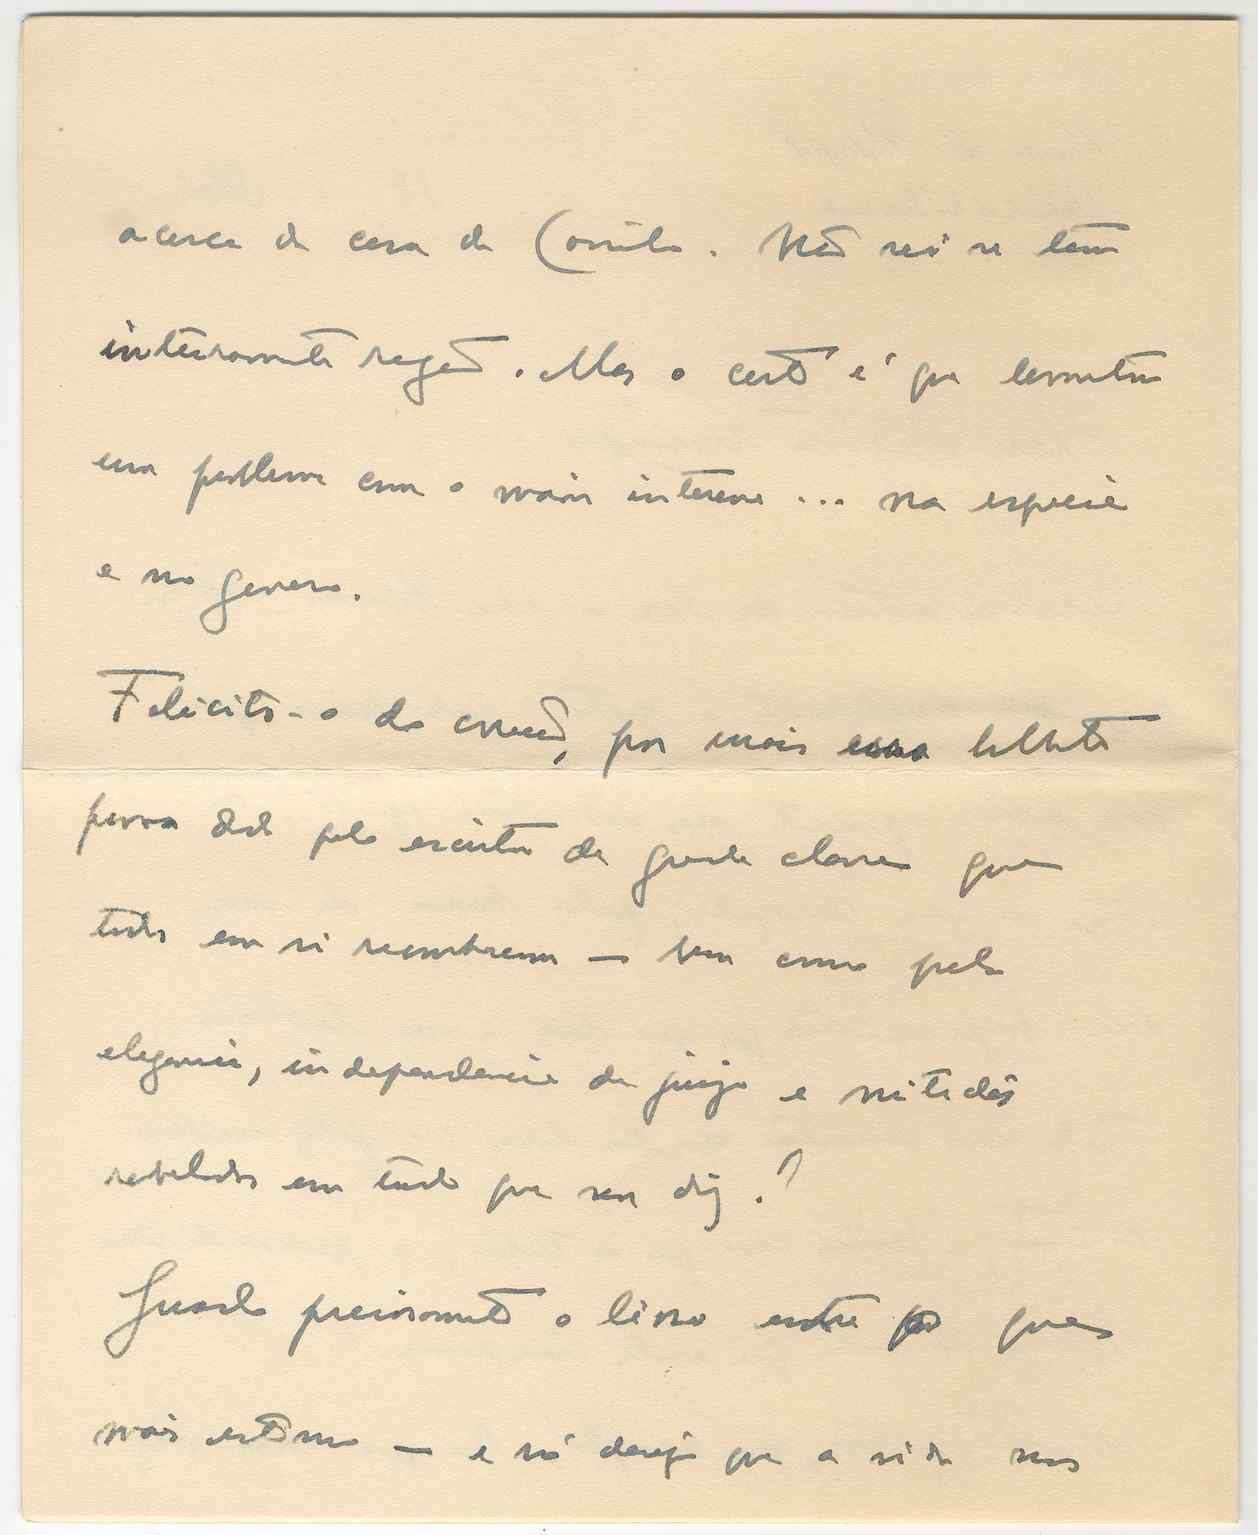 acerca da casa de Camilo. Não sei se tem
inteiramente razão. Mas o certo é que levanta
um problema com o maior interesse... na especie
e no genero.
Felicito-o de coração, por mais essa brilhante
prova dada pelo escritor de grande classe que
todos em si reconhecem — bem como pela
elegancia, independencia de juizo e nitidês
reveladas em tudo que nos diz.
Guardo preciosamente o livro entre os que
mais estimo — e só desejo que a vida nos